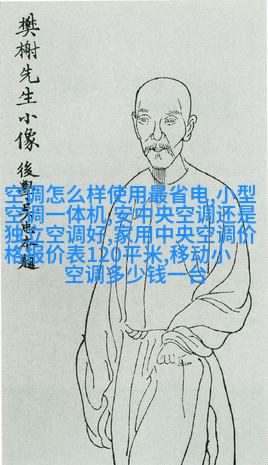 樊榭先生小像
後學
空调怎么样使用最省电,小型
空调一体机,安中央空调还是
独立空调好,家用中央空调价
格报价表120平米,移动小
空调多少钱一台